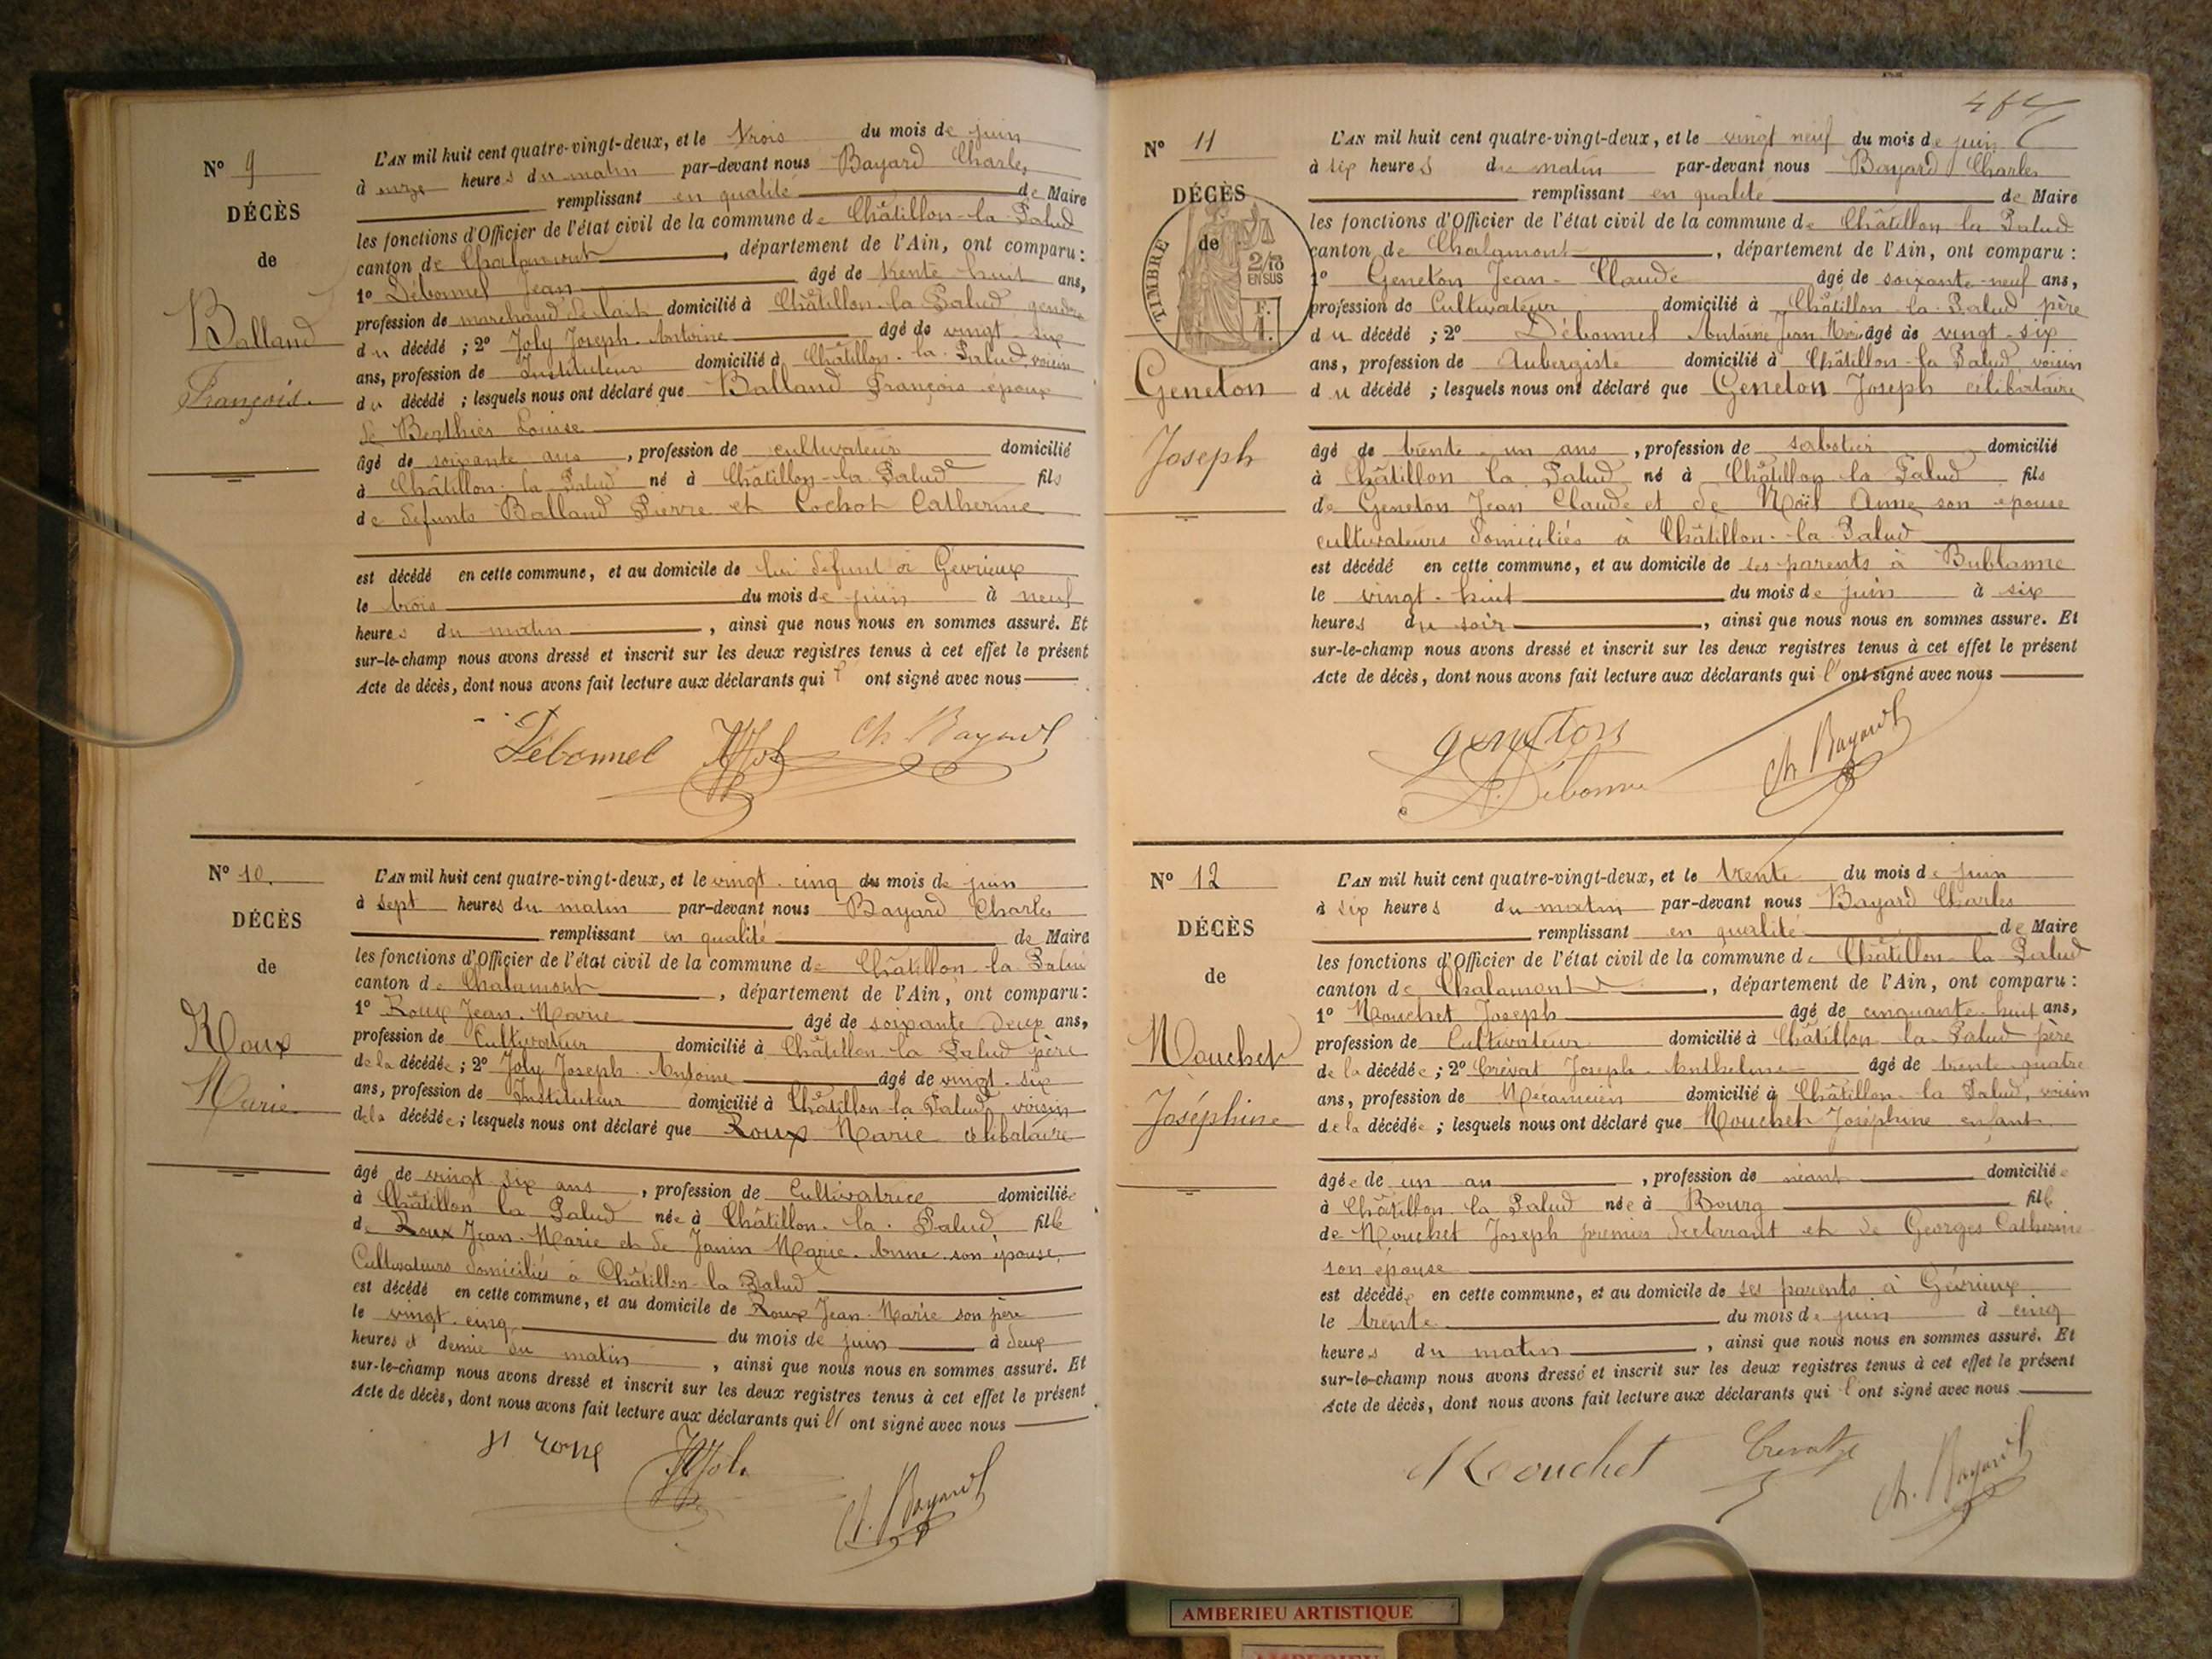 Nº 9
DÉCÈS
de
Balland
François.
L'AN mil huit cent quatre-vingt-deux, et le trois du mois de juin
à onze heures du matin par-devant nous Bayard Charles,
remplissant en qualité de Maire
les fonctions d'Officier de l'état civil de la commune de Châtillon-la-Palud
canton de Chalamont, département de l'Ain, ont comparu:
1º Débonnel Jean âgé de trente huit ans,
profession de marchand de lait domicilié à Châtillon-la-Palud gendre
du décédé ; 2º Joly Joseph-Antoine âgé de vingt-six
ans, profession de Instituteur domicilié à Châtillon-la-Palud, voisin
du décédé ; lesquels nous ont déclaré que Balland François époux
de Berthier Louise
âgé de soixante ans, profession de cultivateur domicilié
à Châtillon-la-Palud né à Châtillon-la-Palud fils
de défunts Balland Pierre et Cochot Catherine
est décédé en cette commune, et au domicile de lui défunt à Gévrieux
le trois du mois de juin à neuf
heures du matin, ainsi que nous nous en sommes assuré. Et
sur-le-champ nous avons dressé et inscrit sur les deux registres tenus à cet effet le présent
Acte de décès, dont nous avons fait lecture aux déclarants qui l' ont signé avec nous
Débonnel Ch. Bayard
Nº 10.
DÉCÈS
de
Roux
Marie
L'AN mil huit cent quatre-vingt-deux, et le vingt-cinq du mois de juin
à sept heures du matin par-devant nous Bayard Charles
remplissant en qualité de Maire
les fonctions d'Officier de l'état civil de la commune de Châtillon-la-Palud
canton de Chalamont, département de l'Ain, ont comparu:
1º Roux Jean-Marie âgé de soixante deux ans,
profession de Cultivateur domicilié à Châtillon-la-Palud père
de la décédée ; 2º Joly Joseph-Antoine âgé de vingt-six
ans, profession de Instituteur domicilié à Châtillon-la-Palud voisin
de la décédée ; lesquels nous ont déclaré que Roux Marie célibataire
âgé de vingt six ans, profession de Cultivatrice domiciliée
à Châtillon la Palud née à Châtillon-la-Palud fille
de Roux Jean-Marie et de Janin Marie-Anne son épouse
Cultivateurs domiciliés à Châtillon-la-Palud
est décédé en cette commune, et au domicile de Roux Jean-Marie son père
le vingt-cinq du mois de juin à deux
heures et demie du matin, ainsi que nous nous en sommes assuré. Et
sur-le-champ nous avons dressé et inscrit sur les deux registres tenus à cet effet le présent
Acte de décès, dont nous avons fait lecture aux déclarants qui l' ont signé avec nous
Ch. Bayard
Nº 11
DÉCÈS
de
TIMBRE
2/10
EN SUS
F.
1.
Geneton
Joseph
L'AN mil huit cent quatre-vingt-deux, et le vingt neuf du mois de juin
à six heures du matin par-devant nous Bayard Charles
remplissant en qualité de Maire
les fonctions d'Officier de l'état civil de la commune de Châtillon la Palud
canton de Chalamont, département de l'Ain, ont comparu:
1º Geneton Jean-Claude âgé de soixante-neuf ans,
profession de Cultivateur domicilié à Châtillon-la-Palud père
du décédé ; 2º Débonnel Antoine Jean âgé de vingt-six
ans, profession de Aubergiste domicilié à Châtillon-la-Palud voisin
du décédé ; lesquels nous ont déclaré que Geneton Joseph célibataire
âgé de trente-un ans, profession de sabotier domicilié
à Châtillon la Palud né à Châtillon la Palud fils
de Geneton Jean Claude et de Noël Anne son épouse
cultivateurs domiciliés à Châtillon-la-Palud
est décédé en cette commune, et au domicile de ses parents à Bublanne
le vingt-huit du mois de juin à six
heures du soir, ainsi que nous nous en sommes assuré. Et
sur-le-champ nous avons dressé et inscrit sur les deux registres tenus à cet effet le présent
Acte de décès, dont nous avons fait lecture aux déclarants qui l' ont signé avec nous
geneton
Ch Bayard
Nº 12
DÉCÈS
de
Mouchet
Joséphine
L'AN mil huit cent quatre-vingt-deux, et le trente du mois de juin
à six heures du matin par-devant nous Bayard Charles
remplissant en qualité de Maire
les fonctions d'Officier de l'état civil de la commune de Châtillon-la-Palud
canton de Chalamont, département de l'Ain, ont comparu:
1º Mouchet Joseph âgé de cinquante-huit ans,
profession de Cultivateur domicilié à Châtillon-la-Palud père
de la décédée ; 2º Crévat Joseph-Anthelme âgé de trente-quatre
ans, profession de Mécanicien domicilié à Châtillon-la Palud, voisin
de la décédée ; lesquels nous ont déclaré que Mouchet Joséphine enfant
âgée de un an, profession de néant domiciliée
à Châtillon-la Palud née à Bourg fille
de Mouchet Joseph premier déclarant et de Georges Catherine
son épouse
est décédée en cette commune, et au domicile de ses parents à Gévrieux
le trente du mois de juin à cinq
heures du matin, ainsi que nous nous en sommes assuré. Et
sur-le-champ nous avons dressé et inscrit sur les deux registres tenus à cet effet le présent
Acte de décès, dont nous avons fait lecture aux déclarants qui l' ont signé avec nous
Mouchet Ch. Bayard
AMBERIEU ARTISTIQUE
AMBERIEU